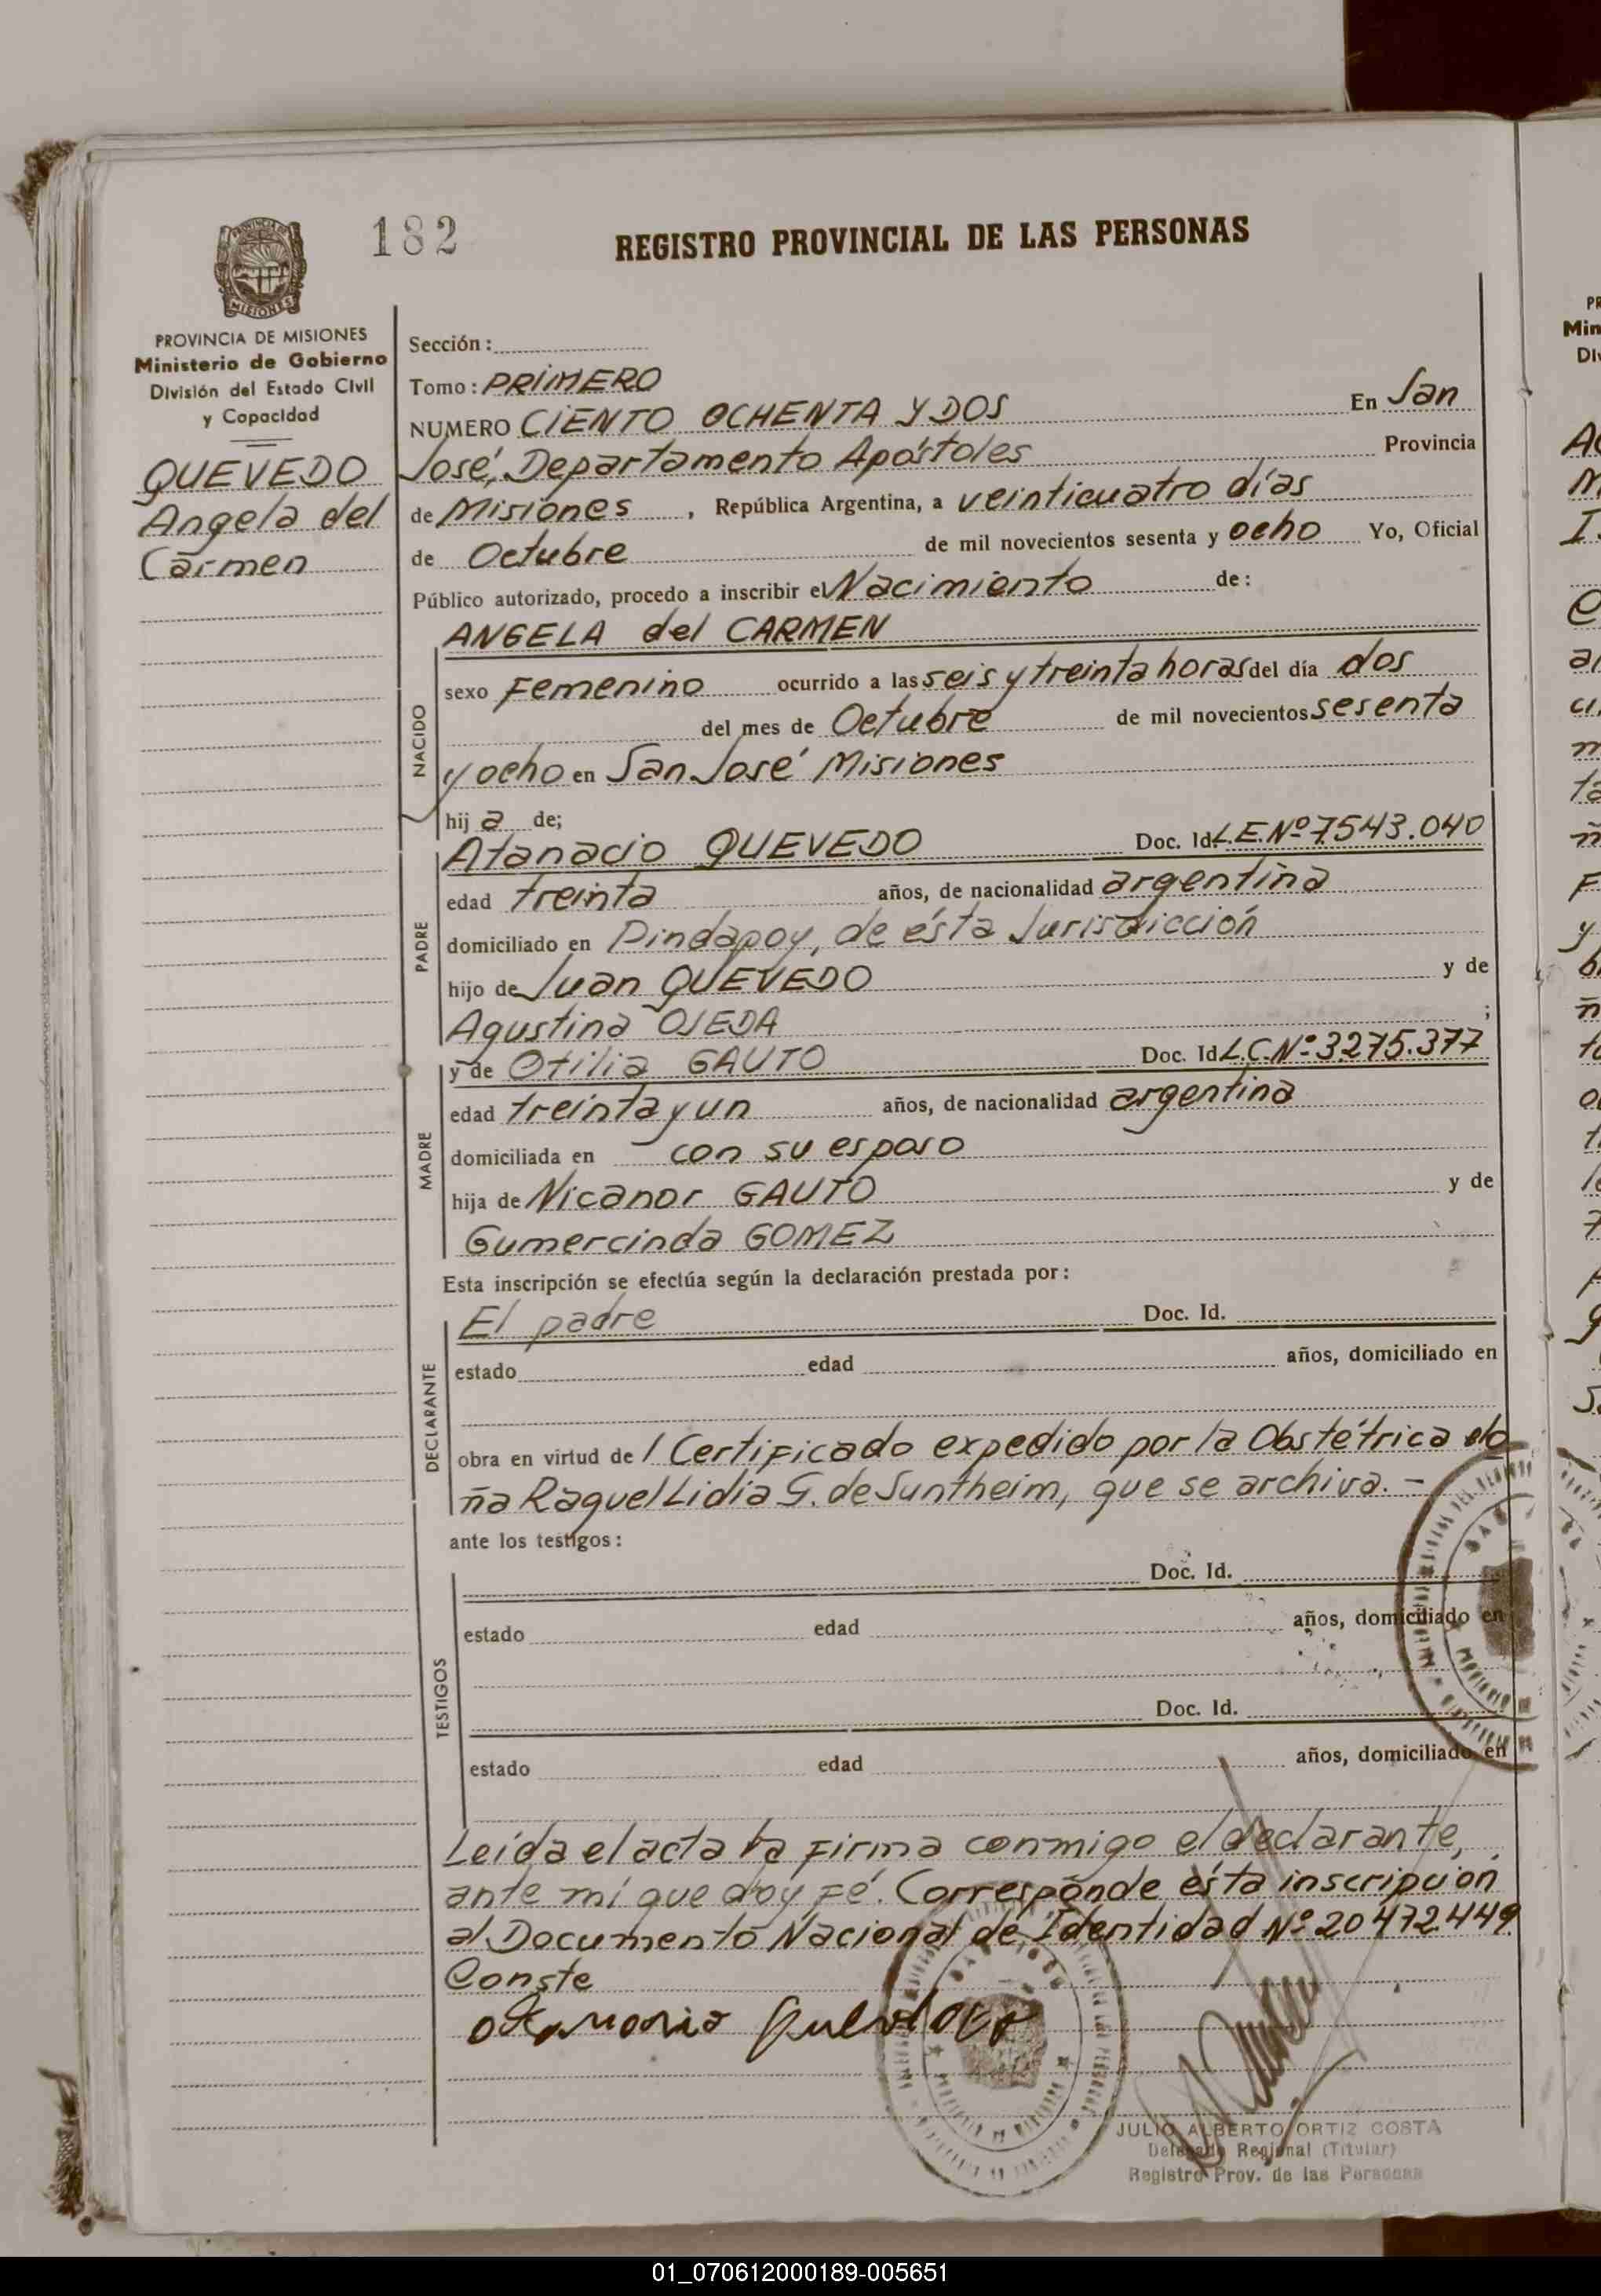 182
REGISTRO PROVINCIAL DE LAS PERSONAS
PROVINCIA DE MISIONES
Ministerio de Gobierno
División del Estado Civil
y Capacidad
QUEVEDO
Angela del
Carmen
Sección:
Tomo: PRIMERO
NUMERO CIENTO OCHENTA Y DOS En San
José, Departamento Apóstoles Provincia
de Misiones, República Argentina, a veinticuatro días
de Octubre de mil novecientos sesenta y ocho Yo, Oficial
Público autorizado, procedo a inscribir el Nacimiento de:
ANGELA del CARMEN
NACIDO
sexo Femenino ocurrido a las seis y treinta horas del día dos
del mes de Octubre de mil novecientos sesenta
y ocho en San José Misiones
hija de;
PADRE
Atanacio QUEVEDO Doc. Id L.E.Nº 7.543.040
edad treinta años, de nacionalidad argentina
domiciliado en Pindapoy, de ésta Jurisdicción
hijo de Juan QUEVEDO y de
Agustina OJEDA ;
MADRE
y de Otilia GAUTO Doc. Id L.C.Nº 3.275.377
edad treinta y un años, de nacionalidad argentina
domiciliada en con su esposo
hija de Nicanor GAUTO y de
Gumercinda GOMEZ
Esta inscripción se efectúa según la declaración prestada por:
DECLARANTE
El padre Doc. Id.
estado edad años, domiciliado en
obra en virtud de 1 Certificado expedido por la Obstétrica do
ña Raquel Lidia G. de Suntheim, que se archiva.-
ante los testigos:
TESTIGOS
Doc. Id.
estado edad años, domiciliado en
Doc. Id.
estado edad años, domiciliado en
Leída el acta la firma conmigo el declarante,
ante mí que doy fé. Corresponde ésta inscripción
al Documento Nacional de Identidad Nº 20.472.449.
Conste
JULIO ALBERTO ORTIZ COSTA
Delegado Regional (Titular)
Registro Prov. de las Personas
01_070612000189-005651